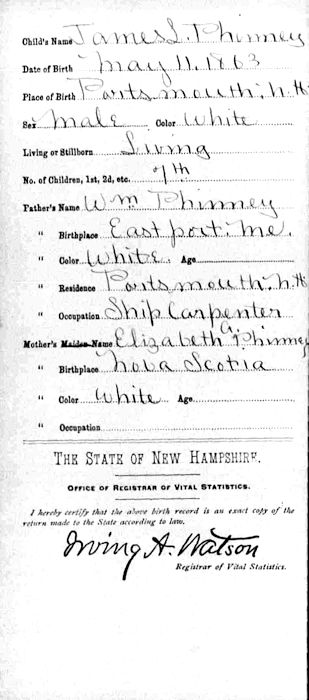 Child's Name James L. Phinney
Date of Birth May 11, 1863
Place of Birth Portsmouth, N.H.
Sex Male Color White
Living or Stillborn Living
No. of Children, 1st, 2d, etc. 7th
Father's Name Wm Phinney
" Birthplace Eastport, Me.
" Color White. Age
" Residence Portsmouth, N.H.
" Occupation Ship Carpenter
Mother's Maiden Name Elizabeth A. Phinney
" Birthplace Nova Scotia
" Color White Age
" Occupation
THE STATE OF NEW HAMPSHIRE.
OFFICE OF REGISTRAR OF VITAL STATISTICS.
I hereby certify that the above birth record is an exact copy of the
return made to the State according to law.
Irving A. Watson
Registrar of Vital Statistics.